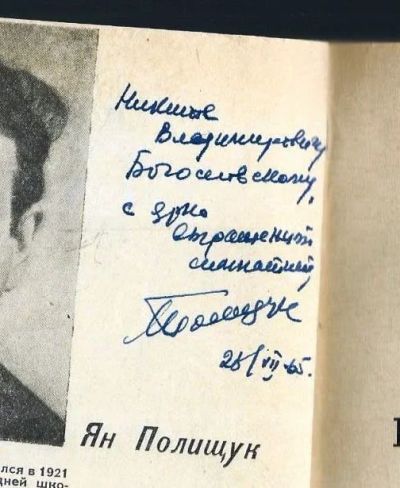 Никите
Владимировичу
Богословскому,
с ярко
выраженной
симпатией
Полищук
25/VII-65.
Ян Полищук
лся в 1921
дней шко-